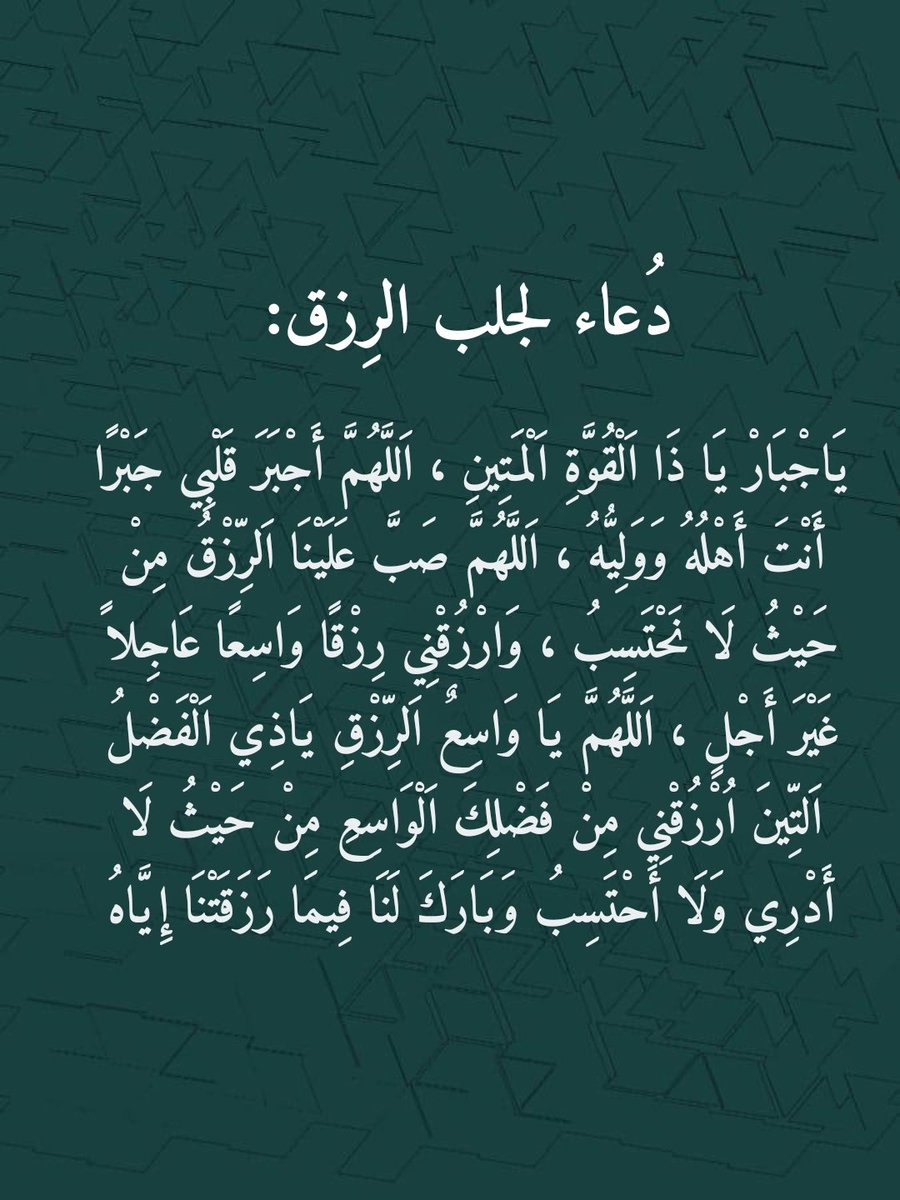 دُعاء لجلب الرِزق:
يَاجْبَارْ يَا ذَا اَلْقُوَّةِ اَلْمَتِينِ ، اَللَّهُمَّ أَجْبَرَ قَلْبِي جَبْرًا
أَنْتَ أَهْلُهُ وَوَلِيُّهُ ، اَللَّهُمَّ صَبَّ عَلَيْنَا اَلرِّزْقُ مِنْ
حَيْثُ لَا نَحْتَسِبُ ، وَارْزُقْنِي رِزْقًا وَاسِعًا عَاجِلاً
غَيْرَ أَجْلٍ ، اَللَّهُمَّ يَا وَاسِعٌ اَلرِّزْقِ يَاذِي اَلْفَضْلُ
اَلتِّينَ اُرْزُقْنِي مِنْ فَضْلِكَ اَلْوَاسِعِ مِنْ حَيْثُ لَا
أَدْرِي وَلَا أَحْتَسِبُ وَبَارَكَ لَنَا فِيمَا رَزَقَتْنَا إِيَّاهُ